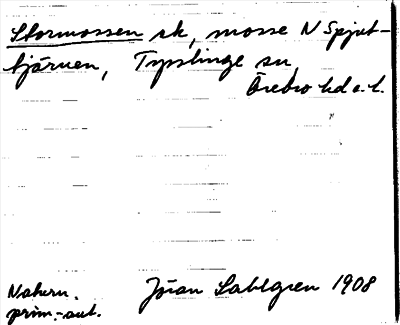 Stormossen sk, mosse N Spjut-
tjärnen, Tysslinge sn,
Örebro hd o.l.
Natur.
prim.-aut.
Jöran Sahlgren 1908